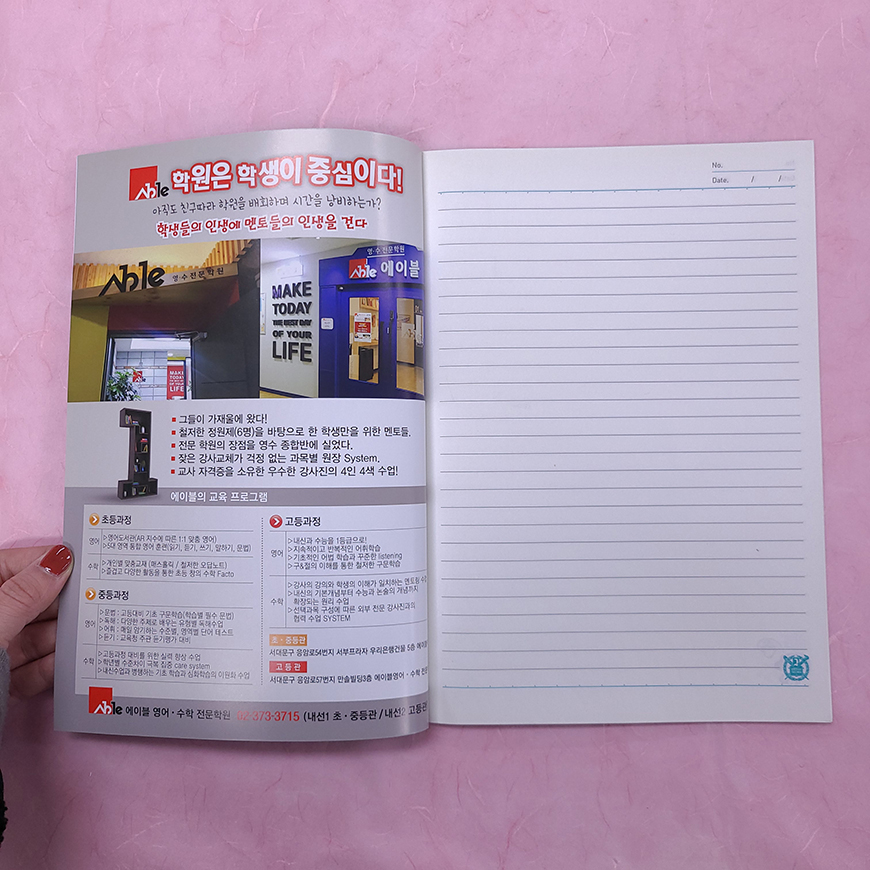 Able 학원은 학생이 중심이다!
아직도 친구따라 학원을 배회하며 시간을 낭비하는가?
학생들의 인생에 멘토들의 인생을 건다
Able 영·수전문학원
MAKE
TODAY
THE BEST DAY
OF YOUR
LIFE
영·수전문학원
Able 에이블
MAKE
TODAY
OF YOUR
LIFE
■ 그들이 가재울에 왔다!
■ 철저한 정원제(6명)을 바탕으로 한 학생만을 위한 멘토들.
■ 전문 학원의 장점을 영수 종합반에 실었다.
■ 잦은 강사교체가 걱정 없는 과목별 원장 System.
■ 교사 자격증을 소유한 우수한 강사진의 4인 4색 수업!
에이블의 교육 프로그램
초등과정
영어
▷영어도서관(AR 지수에 따른 1:1 맞춤 영어)
▷5대 영역 통합 영어 훈련(읽기, 듣기, 쓰기, 말하기, 문법)
수학
▷개인별 맞춤교재 (매스홀릭 / 철저한 오답노트)
▷즐겁고 다양한 활동을 통한 초등 창의 수학 Facto
중등과정
영어
▷문법 : 고등대비 기초 구문학습(학습별 필수 문법)
▷독해 : 다양한 주제로 배우는 유형별 독해수업
▷어휘 : 매일 암기하는 수준별, 영역별 단어 테스트
▷듣기 : 교육청 주관 듣기평가 대비
수학
▷고등과정 대비를 위한 실력 향상 수업
▷학년별 수준차이 극복 집중 care system
▷내신수업과 병행하는 기초 학습과 심화학습의 이원화 수업
고등과정
영어
▷내신과 수능을 1등급으로!
▷지속적이고 반복적인 어휘학습
▷기초적인 어법 학습과 꾸준한 listening
▷구&절의 이해를 통한 철저한 구문학습
수학
▷강사의 강의와 학생의 이해가 일치하는 멘토링 수업
▷내신의 기본개념부터 수능과 논술의 개념까지
확장되는 원리 수업
▷선택과목 구성에 따른 외부 전문 강사진과의
협력 수업 SYSTEM
초·중등관
서대문구 응암로54번지 서부프라자 우리은행건물 5층
고등관
서대문구 응암로57번지 만솔빌딩3층 에이블영어·수학
Able 에이블 영어·수학 전문학원 02-373-3715 (내선1 초·중등관 / 내선2 고등관
No.
Date. / /